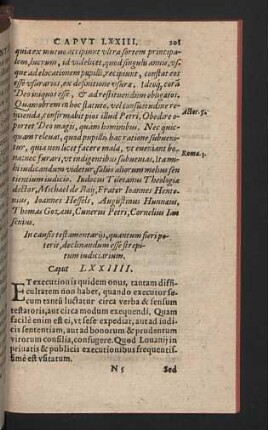 CAPVT LXXIII. 201
quia ex mutuo accipiunt vltra sortem principa-
lem, lucrum, id videlicet, quod singulis annis, vs-
que ad elocationem pupilli, recipiunt, constat eos
esse vsurarios, ex definitione vsuræ. Ideoq́; corā
Deo iniquos esse, & ad restituendum obligatos.
Quamobrem in hoc statuto, vel consuetudine re-
cipienda, confirmabit pios illud Petri, Obedire o-
portet Deo magis, quam hominibus. Nec quic-
quam releuat, quod pupillo hac ratione subueni-
tur, quia non licet facere mala, vt eueniant bo-
na, nec furari, vt indigentibus subuenias. Ita mi-
hi iudicandum videtur, saluo aliorum melius sen-
tientium iudicio. Iudocus Tiletanus Theologiæ
doctor, Michael de Baij, Frater Ioannes Hente-
nius, Ioannes Hessels, Augustinus Hunnæus,
Thomas Gozæus, Cunerus Petri, Cornelius Ian
senius.
Actor. 5.
Roma. 3.
In causis testamentarijs, quantum fieri po-
terit, declinandum esse strepi-
tum iudiciarium.
Caput LXXIIII.
ET executio is quidem onus, tantam diffi-
cultatem non habet, quando executor se-
cum tantū luctatur circa verba & sensum
testatoris, aut circa modum exequendi. Quam
facile enim est ei, vt sese expediat, aut ad iudi-
cis sententiam, aut ad bonorum & prudentum
virorum consilia, confugere. Quod Louanij in
priuatis & publicis executionibus frequentis-
simè est vsitatum.
N 5 Sed